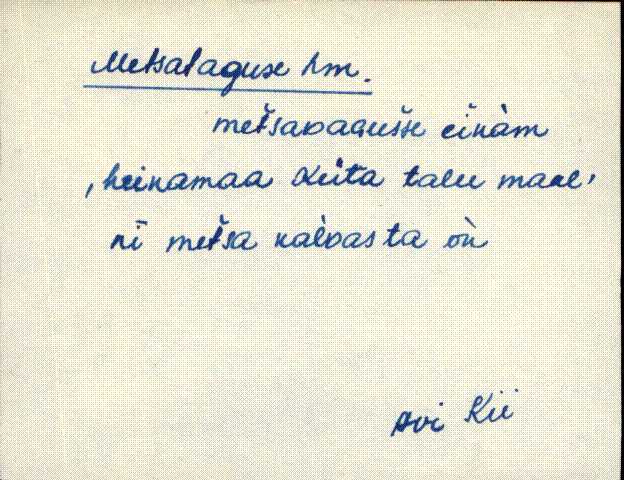 Metsataguse hm.
metsaDagusse einäm
‚heinamaa Kiita talu maal’
ni metsa nälDas ta on
Avi Kii